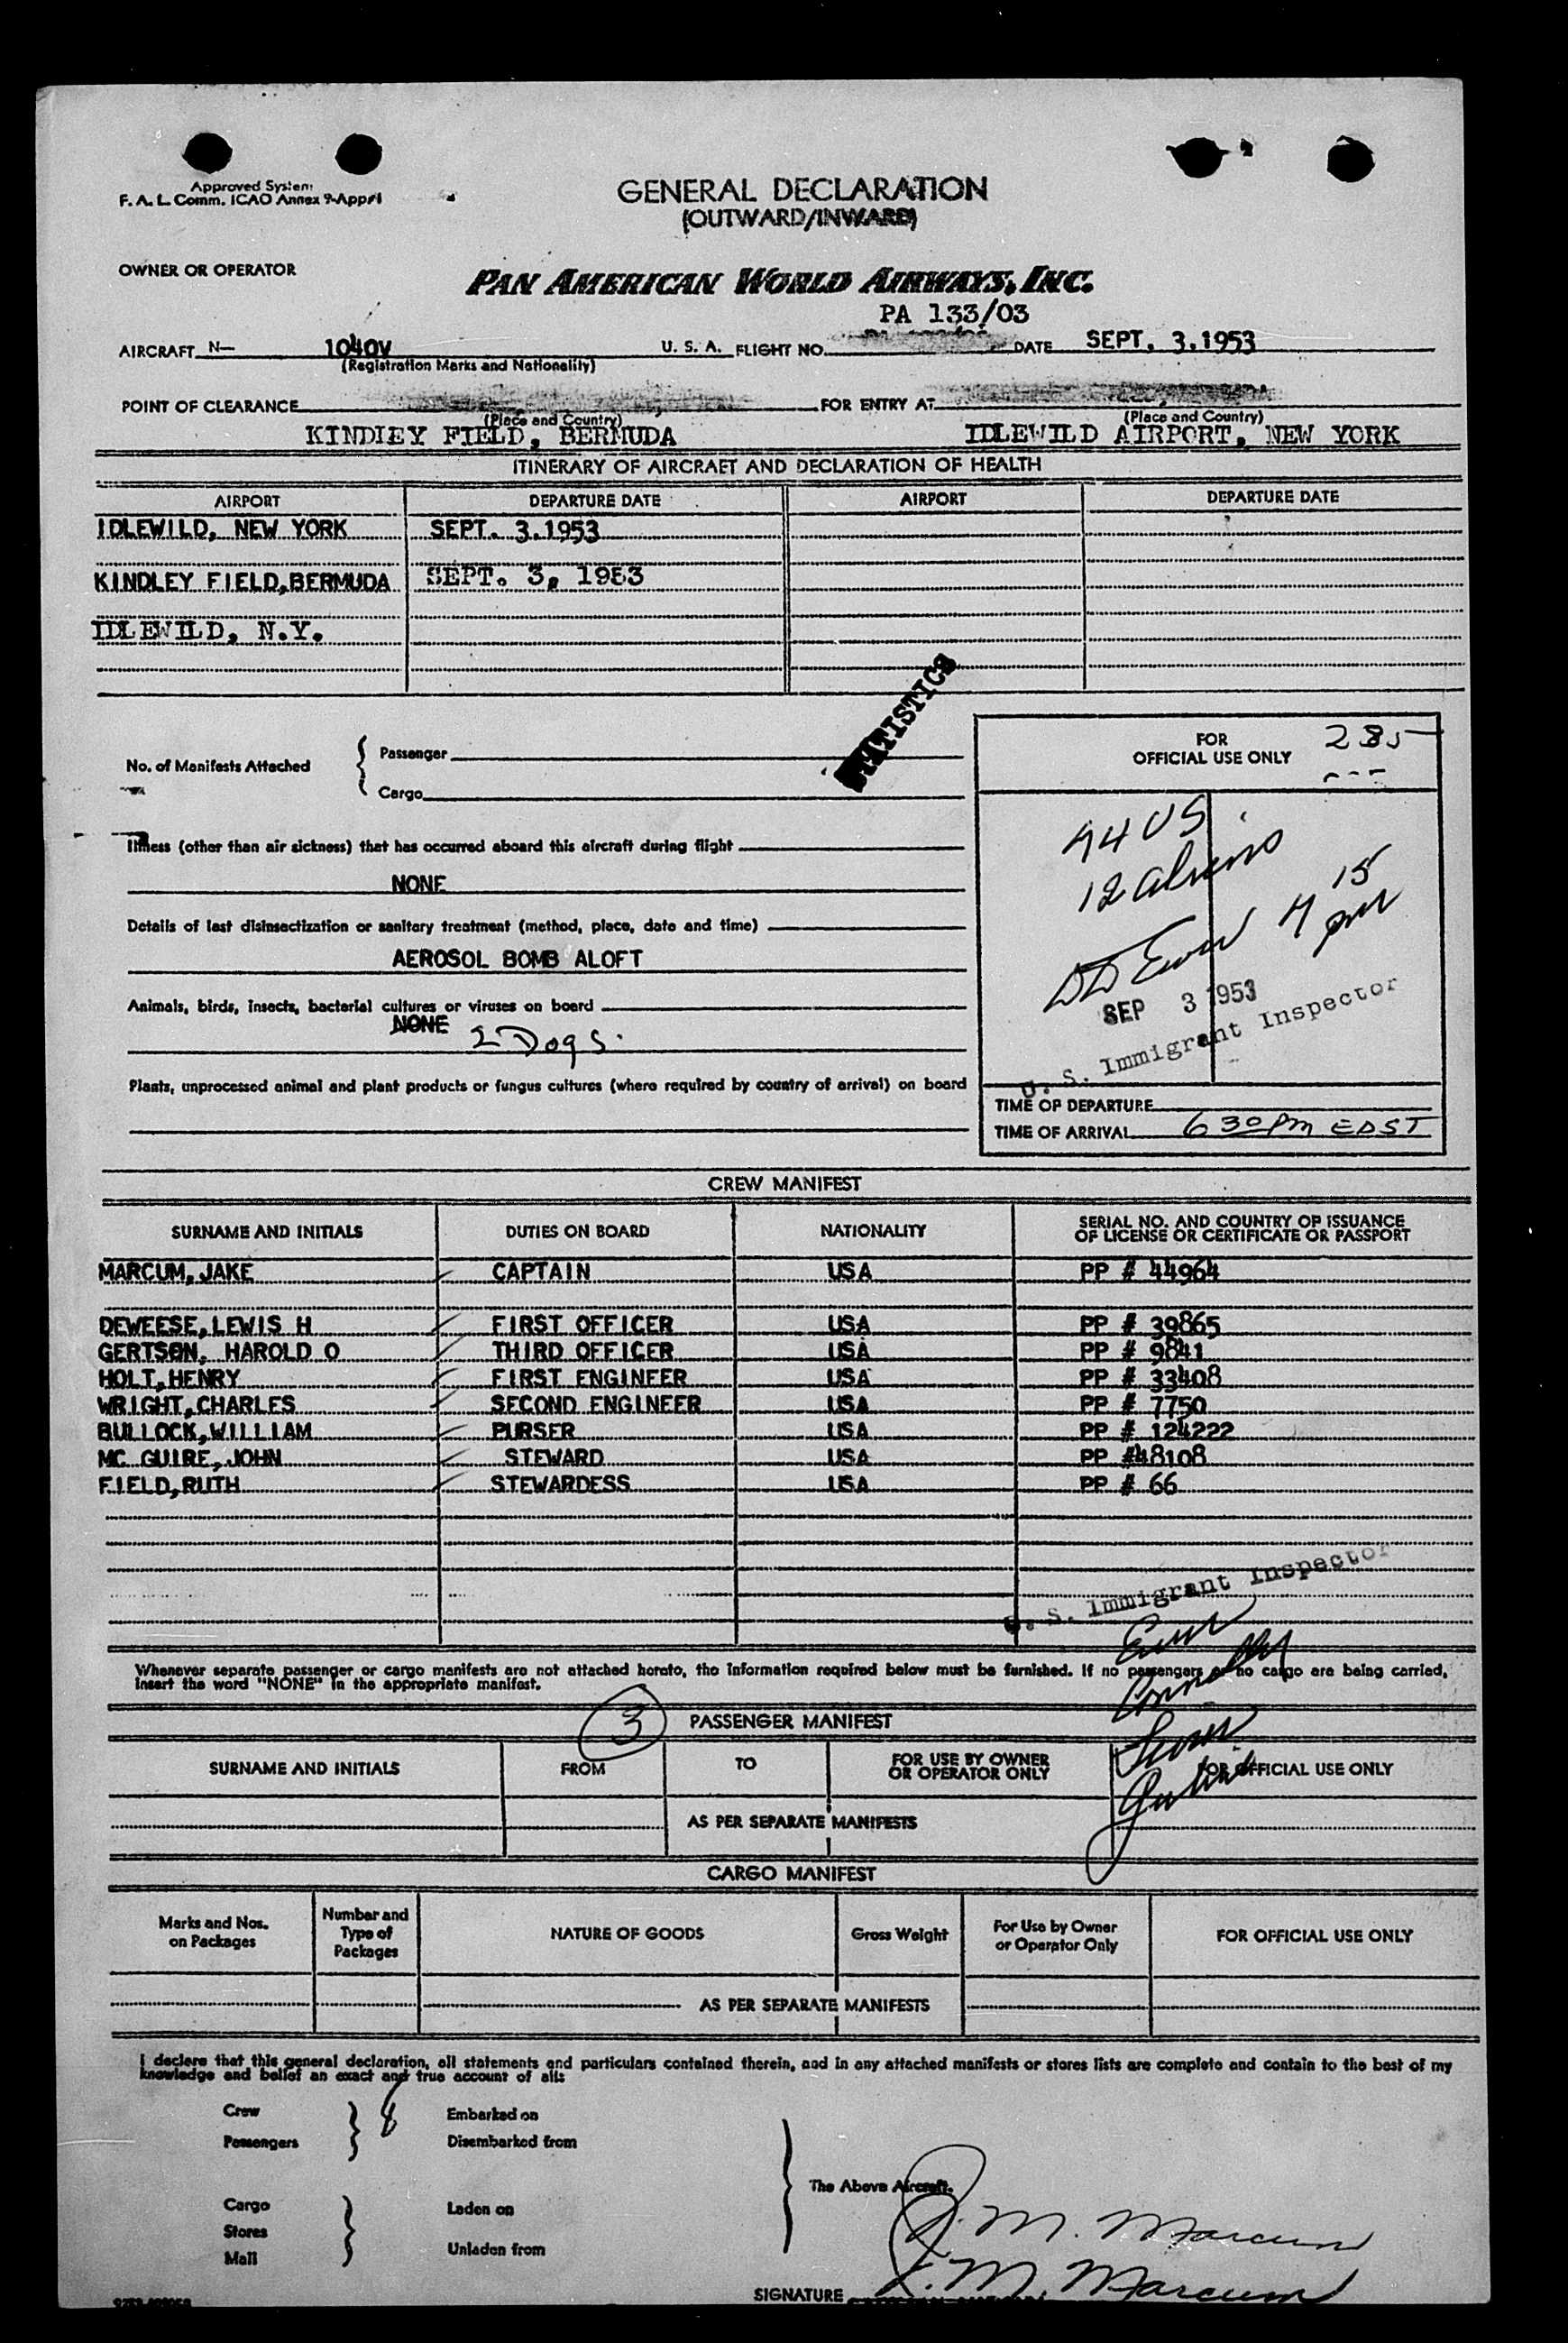 Approved System
F. A. L. Comm. ICAO Annex 9-App#1
GENERAL DECLARATION
(OUTWARD/INWARD)
OWNER OR OPERATOR
PAN AMERICAN WORLD AIRWAYS, INC.
PA 133/03
AIRCRAFT N— 1040V U. S. A. FLIGHT NO. DATE SEPT. 3.1953
(Registration Marks and Nationality)
POINT OF CLEARANCE FOR ENTRY AT
(Place and Country) (Place and Country)
KINDLEY FIELD, BERMUDA IDLEWILD AIRPORT, NEW YORK
ITINERARY OF AIRCRAFT AND DECLARATION OF HEALTH
AIRPORT DEPARTURE DATE AIRPORT DEPARTURE DATE
IDLEWILD, NEW YORK SEPT. 3.1953
KINDLEY FIELD,BERMUDA SEPT. 3, 1953
IDLEWILD, N.Y.
STATISTICS
No. of Manifests Attached
Passenger
Cargo
FOR
OFFICIAL USE ONLY
285
Illness (other than air sickness) that has occurred aboard this aircraft during flight
NONE
Details of last disinsectization or sanitary treatment (method, place, date and time)
AEROSOL BOMB ALOFT
Animals, birds, insects, bacterial cultures or viruses on board
NONE 2 Dogs.
Plants, unprocessed animal and plant products or fungus cultures (where required by country of arrival) on board
44 US
12 aliens
7 15 pm
SEP 3 1953
U. S. Immigrant Inspector
TIME OF DEPARTURE
TIME OF ARRIVAL 6 30 PM EDST
CREW MANIFEST
SURNAME AND INITIALS DUTIES ON BOARD NATIONALITY SERIAL NO. AND COUNTRY OF ISSUANCE
OF LICENSE OR CERTIFICATE OR PASSPORT
MARCUM, JAKE CAPTAIN USA PP # 44964
DEWEESE,LEWIS H FIRST OFFICER USA PP # 39865
GERTSON, HAROLD O THIRD OFFICER USA PP # 9841
HOLT,HENRY FIRST ENGINEER USA PP # 33408
WRIGHT,CHARLES SECOND ENGINEER USA PP # 7750
BULLOCK,WILLIAM PURSER USA PP # 124222
MC GUIRE,JOHN STEWARD USA PP #48108
FIELD,RUTH STEWARDESS USA PP # 66
U. S. Immigrant Inspector
Whenever separate passenger or cargo manifests are not attached hereto, the information required below must be furnished. If no passengers or no cargo are being carried,
insert the word "NONE" in the appropriate manifest.
3
PASSENGER MANIFEST
SURNAME AND INITIALS FROM TO FOR USE BY OWNER
OR OPERATOR ONLY FOR OFFICIAL USE ONLY
AS PER SEPARATE MANIFESTS
CARGO MANIFEST
Marks and Nos.
on Packages
Number and
Type of
Packages
NATURE OF GOODS
Gross Weight
For Use by Owner
or Operator Only
FOR OFFICIAL USE ONLY
AS PER SEPARATE MANIFESTS
I declare that this general declaration, all statements and particulars contained therein, and in any attached manifests or stores lists are complete and contain to the best of my
knowledge and belief an exact and true account of all:
Crew 8 Embarked on
Passengers Disembarked from
The Above Aircraft.
Cargo Laden on
Stores
Mail Unladen from
J. M. Marcum
SIGNATURE J. M. Marcum